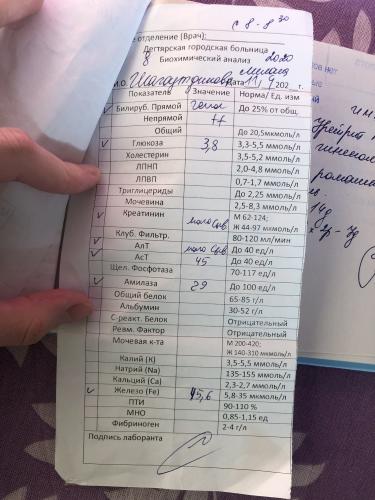 с 8 - 8 30
е отделение (Врач):
Дегтярская городская больница
8 Биохимический анализ 2020
и.о. Милана Дата 11, 9 202 г.
Показатель Значение Норма/ Ед. изм
✓ Билируб. Прямой гемол До 25% от общ.
Непрямой ++
Общий До 20,5мкмоль/л
✓ Глюкоза 3,8 3,3-5,5 ммоль/л
Холестерин 3,5-5,2 ммоль/л
ЛПНП 2,0-4,8 ммоль/л
ЛПВП 0,7-1,7 ммоль/л
Триглицериды До 2,25 ммоль/л
Мочевина 2,5-8,3 ммоль/л
✓ Креатинин мало сыв М 62-124;
Ж 44-97 мкмоль/л
Клуб. Фильтр. 80-120 мл/мин
✓ АлТ мало сыв До 40 ед/л
✓ АсТ 45 До 40 ед/л
Щел. Фосфотаза 70-117 ед/л
✓ Амилаза 29 До 100 ед/л
Общий белок 65-85 г/л
Альбумин 30-52 г/л
С-реакт. Белок Отрицательный
Ревм. Фактор Отрицательный
Мочевая к-та М 200-420;
Ж 140-310 мкмоль/л
Калий (К) 3,5-5,5 ммоль/л
Натрий (Na) 135-155 ммоль/л
Кальций (Ca) 2,3-2,7 ммоль/л
✓ Железо (Fe) 45,6 5,8-35 мкмоль/л
ПТИ 90-110 %
МНО 0,85-1,15 ед
Фибриноген 2-4 г/л
Подпись лаборанта